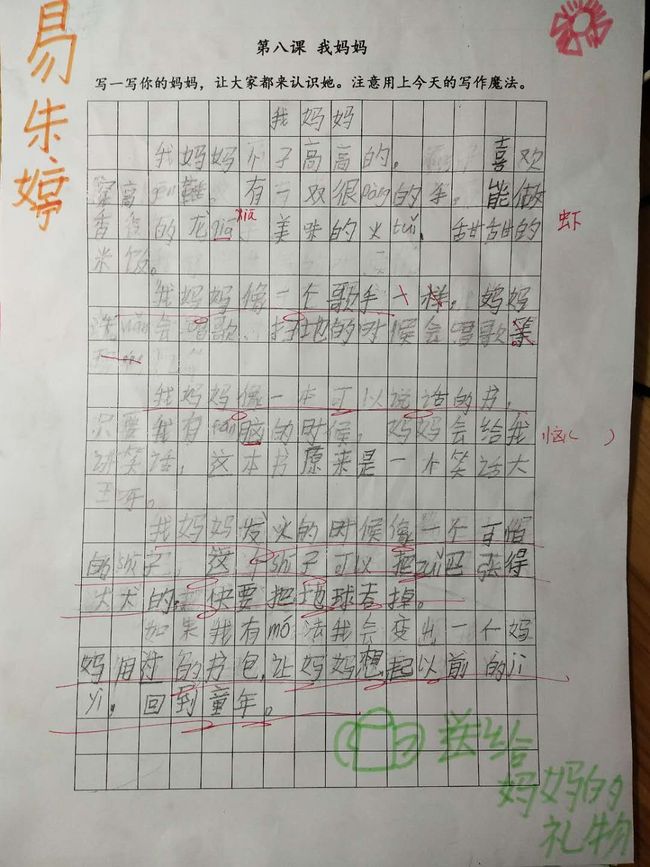 易朱婷
第八课 我妈妈
写一写你的妈妈，让大家都来认识她。注意用上今天的写作魔法。
我妈妈
我妈妈个子高高的，喜欢
穿高gēn鞋。有一双很pàng的手，能做
香 的龙qiā xiā 美味的火tuǐ，甜甜的 虾
米饭。
我妈妈像一个歌手一样，妈妈
洗wǎn会唱歌、扫地的时候会唱歌等
我妈妈像一本可以说话的书，
只要我有fán脑的时候，妈妈会给我 恼（ ）
讲笑话，这本书原来是一个笑话大
王呀。
我妈妈发火的时候像一个可怕
的shī子，这个shī子可以把zuǐ巴张得
大大的，快要把地球吞掉。
如果我有mó法我会变出一个妈
妈用过的书包，让妈妈想起以前的jì
yì，回到童年。
送给
妈妈的
礼物